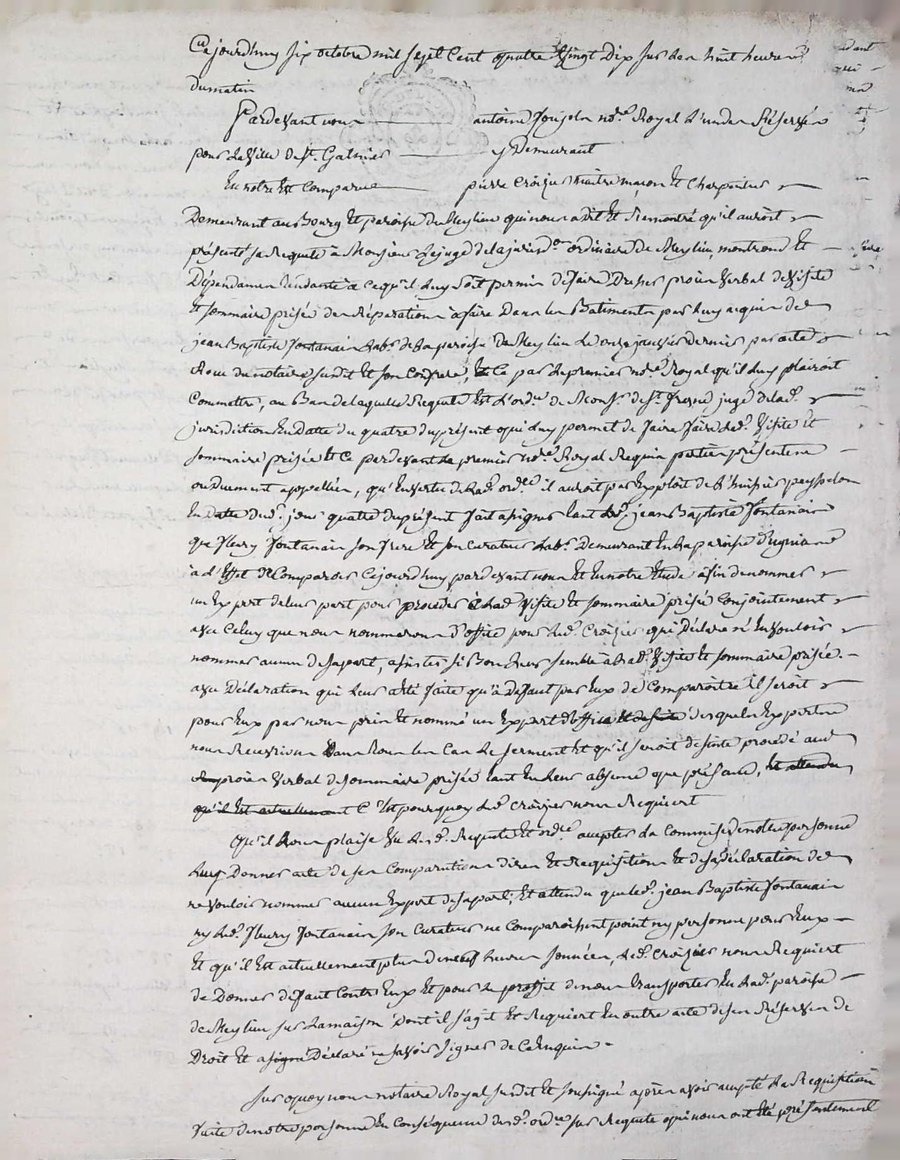 Cejourdhuy six octobre mil sept cent quatre vingt dix sur les huit heures
du matin
Pardevant nous antoine no.re Royal Reservé
pour la ville de St. Galmier y Demeurant
En notre Et Comparue pierre Croizier maitre masson Et Charpentier
Demeurant au Bourg Et paroisse de Meylieu qui nous a dit Et Remontré qu'il auroit
présenté sa Requete à Monsieur Le juge de la jurisd.on ordinaire de Meylieu, montrond Et
Dépendances tendante à ce qu'il luy soit permis de faire Dresser procès verbal de visite
Et sommaire prisée des Réparations à faire Dans les Batiments par luy acquis de
jean Baptiste fontanais Lab.r de la paroisse de Meylieu Le onze janvier dernier par acte
Recu du notaire susdit Et son Confrere, Et Ce par Le premier no.re Royal qu'il luy plairoit
Commettre, au Bas de laquelle Requete Est L'ord.ce de Mons.r de St. fresne juge de lad.
jurisdiction En Datte du quatre du present qui luy permet de faire faire lad. visite Et
sommaire prisée Et ce pardevant Le premier no.re Royal Requis parties présentes
ou Duement appellées, qu'En vertu de Lad. ord.ce il auroit par Exploit de L'huissier peysselon
En datte dud. jour quatre du présent fait assigner tant Led. jean Baptiste fontanais
que fleury fontanais son frere Et son Curateur Lab.r Demeurant En La paroisse
à L'Effet de Comparoir Cejourdhuy pardevant nous Et En notre Etude afin de nommer
un Expert de leur part pour proceder à Lad. visite Et sommaire prisée Conjointement
avec Celuy que nous nommerons d'office pour Led. Croizier qui Déclare n'En vouloir
nommer aucun de sa part, assister si Bon Leur semble à Lad. visite Et sommaire prisée.
avec Déclaration qui Leur a Eté faite qu'à deffaut par Eux de Comparoitre il seroit
pour Eux par nous pris Et nommé un Expert d'office Et de suite desquels Experts
nous Recevrions Dans tous les Cas Le serment Et qu'il seroit de suite procedé aud.
procès verbal de sommaire prisée tant En Leur absence que présence, Et attendu
qu'il Est actuellement C'Est pourquoy Led. Croizier nous Requiert
Qu'il nous plaise vu Lad. Requete Et ord.ce accepter La Commise de notre personne
Luy Donner acte de ses Comparution dires Et Requisition Et de sa déclaration de
ne vouloir nommer aucun Expert de sa part; Et attendu que led. jean Baptiste fontanais
ny Led. fleury fontanais son Curateur ne Comparoissent point ny personne pour Eux
Et qu'il Est actuellement plus de neuf heures sonnées, Led. Croizier nous Requiert
de Donner deffaut Contre Eux Et pour Le proffit de nous transporter En Lad. paroisse
de Meylieu sur La maison dont il s'agit Et Requiert En outre acte de ses Réserves de
Droit Et a signé Déclaré ne savoir signer de Ce Enquis.
sur quoy nous notaire Royal susdit Et soussigné après avoir accepté La Requisition
faite de notre personne En Conséquence de lad. ord.ce sur Requete qui nous ont Eté présentement